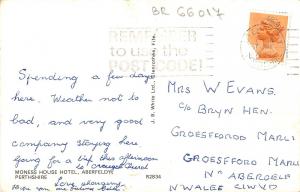 BR 66017
REMEMBER
to use the
POSTCODE!
Spending a few days
here. Weather not to
bad, and very good
company staying here
going for a trip this afternoon
to
MONESS HOUSE HOTEL, ABERFELDY
PERTHSHIRE R2834
J. B. White Ltd., Dundee
MRS W EVANS.
C/O BRYN HEN.
GROESFFOROD MARLI
GROESFFORD MARLI
Nr ABERGELE
N WALES